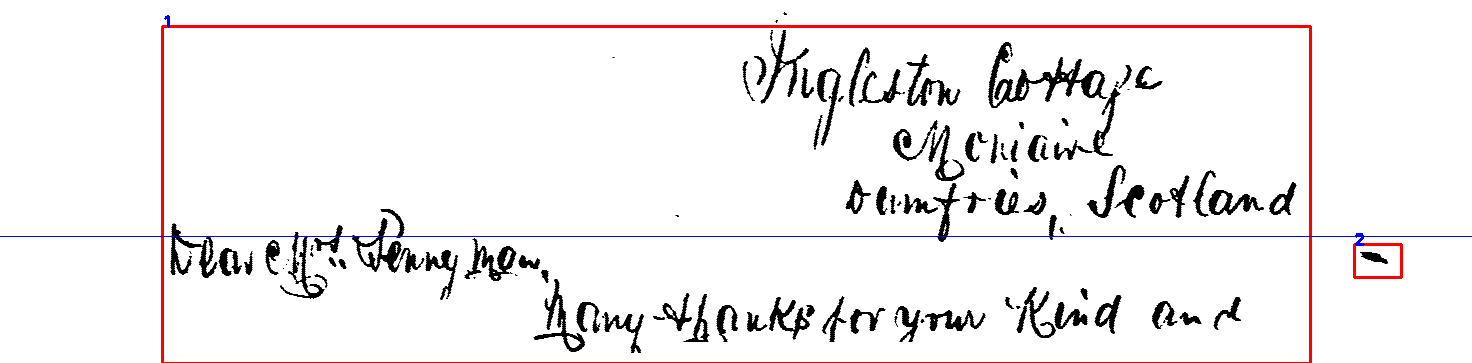 Ingleston Cottage
Moniaive
Dumfries, Scotland
Dear Mrs. Pennyman,
Many thanks for your kind and
1
2